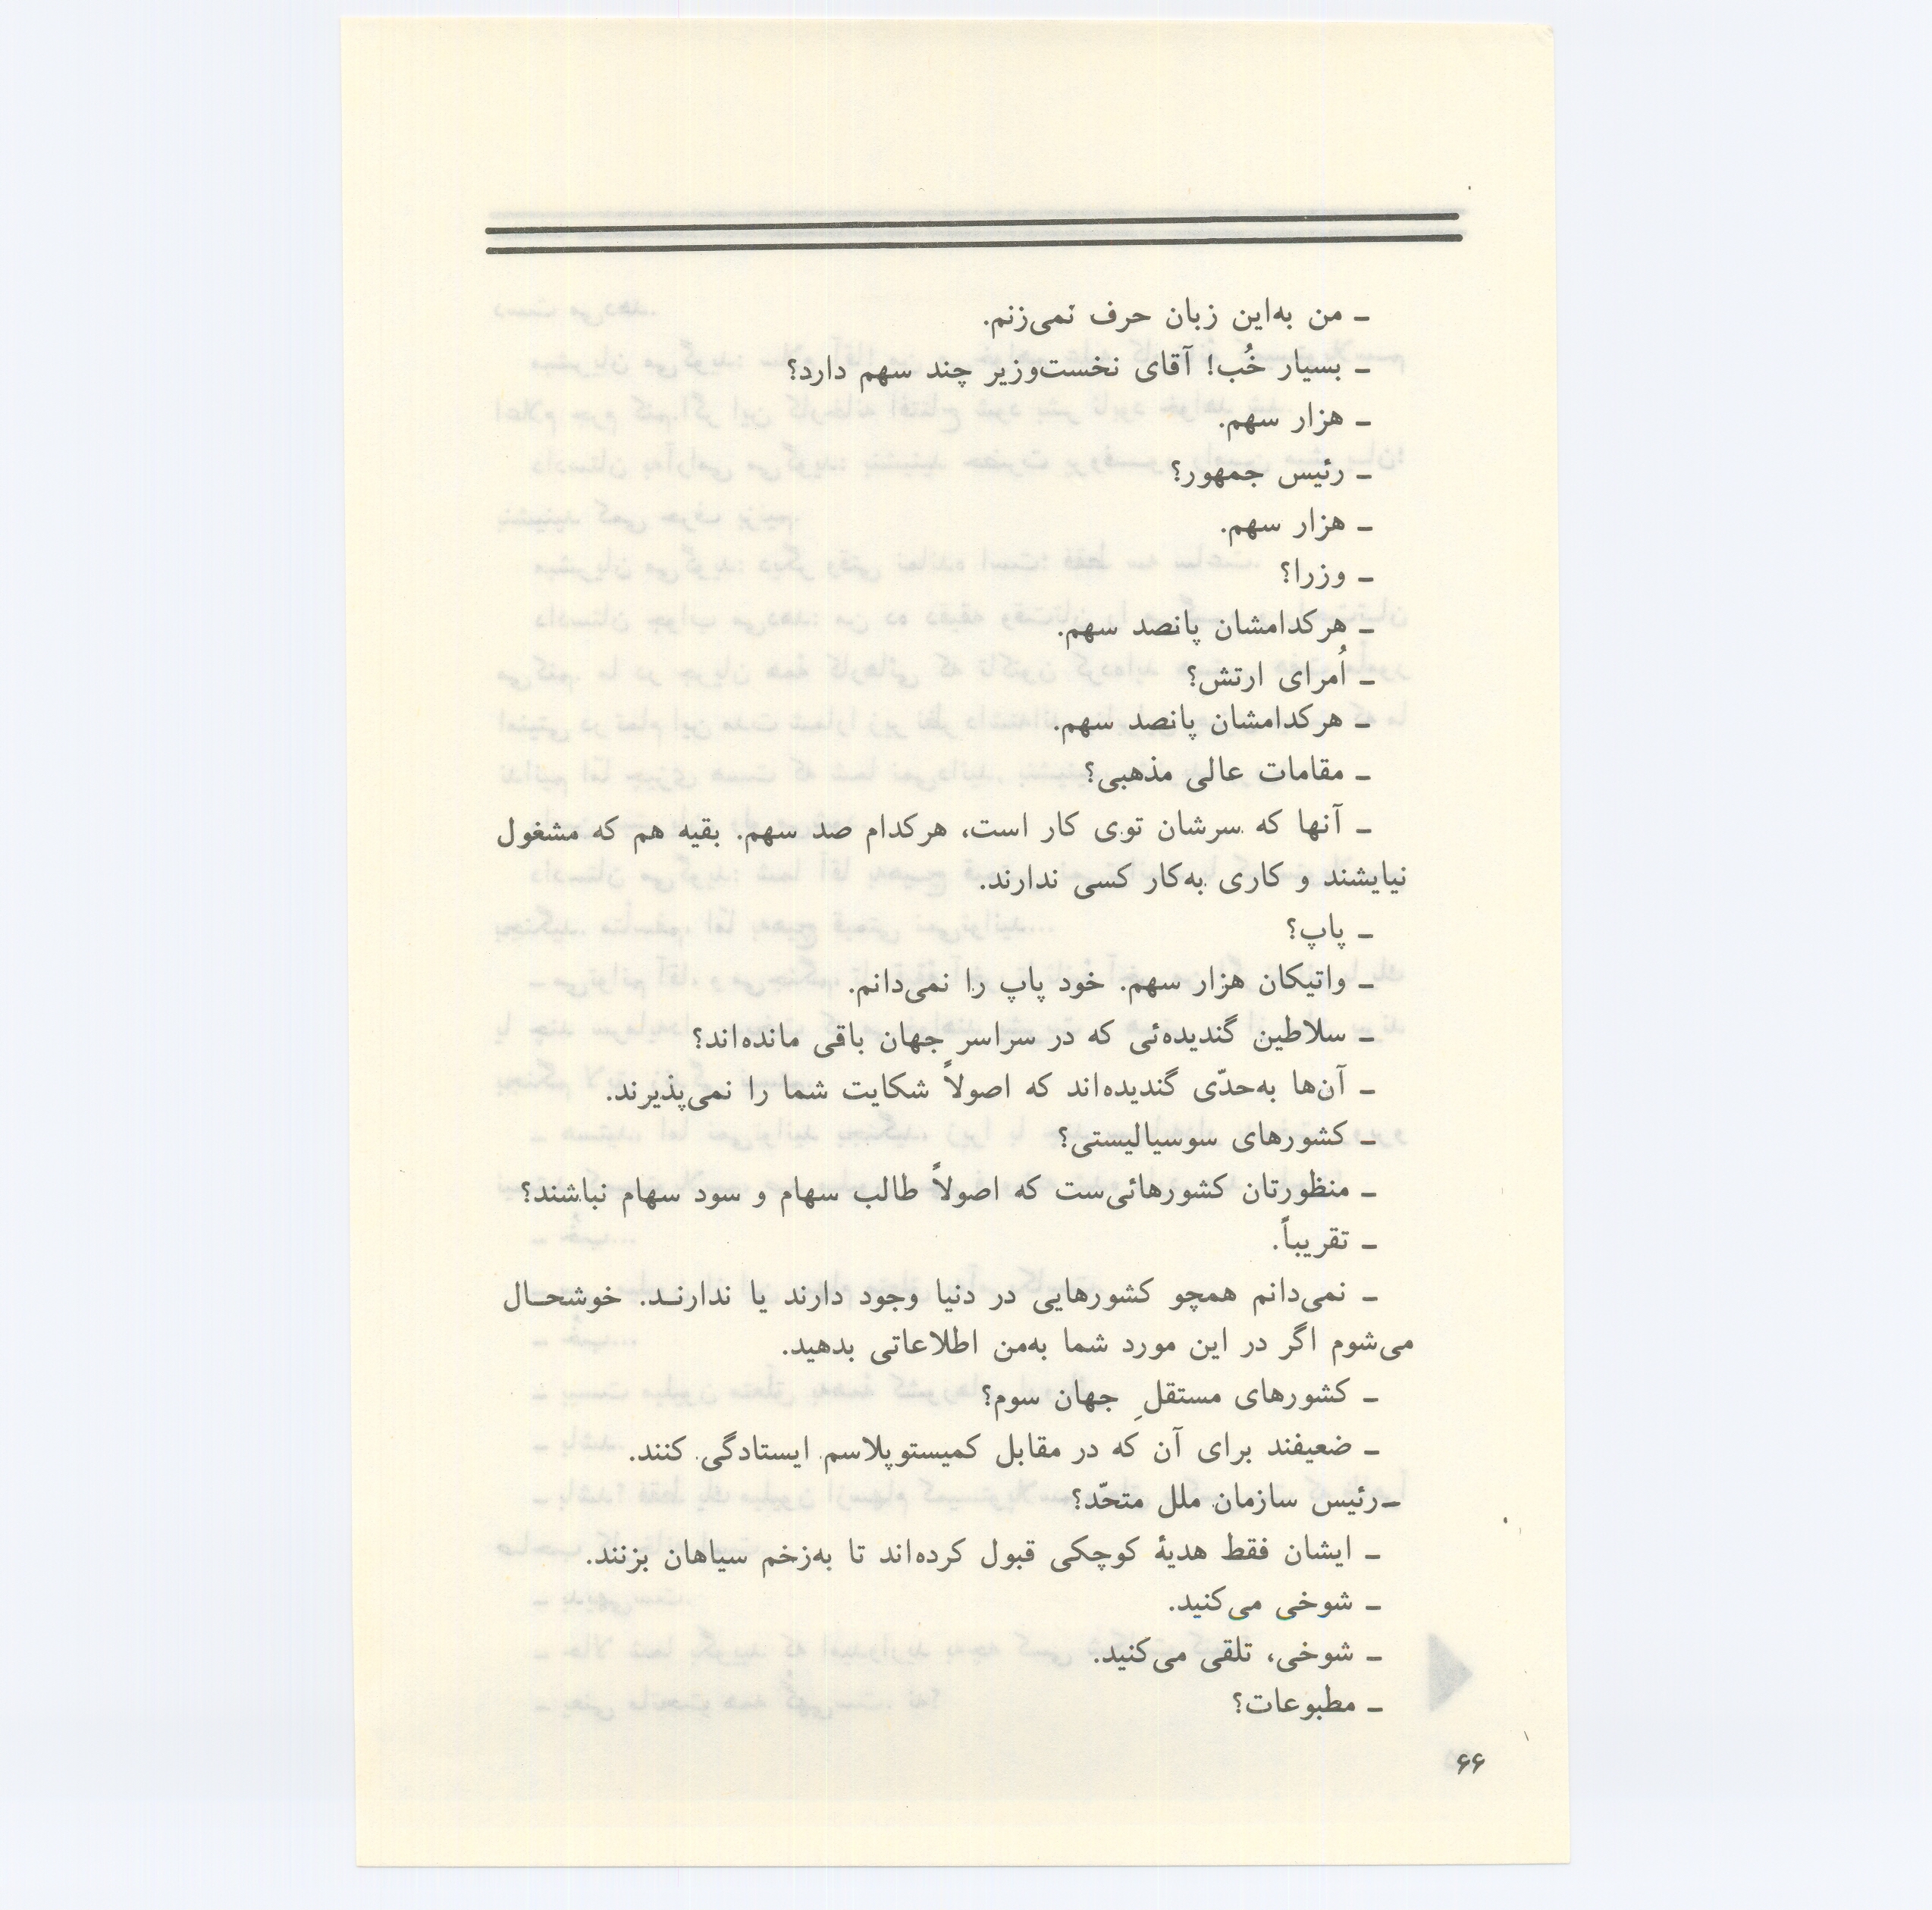 ـ من به‌این زبان حرف نمی‌زنم.
ـ بسیار خُب! آقای نخست‌وزیر چند سهم دارد؟
ـ هزار سهم.
ـ رئیس جمهور؟
ـ هزار سهم.
ـ وزرا؟
ـ هرکدامشان پانصد سهم.
ـ اُمرای ارتش؟
ـ هرکدامشان پانصد سهم.
ـ مقامات عالی مذهبی؟
ـ آنها که سرشان توی کار است، هرکدام صد سهم. بقیه هم که مشغول
نیایشند و کاری به‌کار کسی ندارند.
ـ پاپ؟
ـ واتیکان هزار سهم. خود پاپ را نمی‌دانم.
ـ سلاطین گندیده‌ئی که در سراسر جهان باقی مانده‌اند؟
ـ آن‌ها به‌حدّی گندیده‌اند که اصولاً شکایت شما را نمی‌پذیرند.
ـ کشورهای سوسیالیستی؟
ـ منظورتان کشورهائی‌ست که اصولاً طالب سهام و سود سهام نباشند؟
ـ تقریباً.
ـ نمی‌دانم همچو کشورهایی در دنیا وجود دارند یا ندارنـد. خوشحـال
می‌شوم اگر در این مورد شما به‌من اطلاعاتی بدهید.
ـ کشورهای مستقلِ جهان سوم؟
ـ ضعیفند برای آن که در مقابل کمیستوپلاسم ایستادگی کنند.
ـ رئیس سازمان ملل متحّد؟
ـ ایشان فقط هدیهٔ کوچکی قبول کرده‌اند تا به‌زخم سیاهان بزنند.
ـ شوخی می‌کنید.
ـ شوخی، تلقی می‌کنید.
ـ مطبوعات؟
۶۶